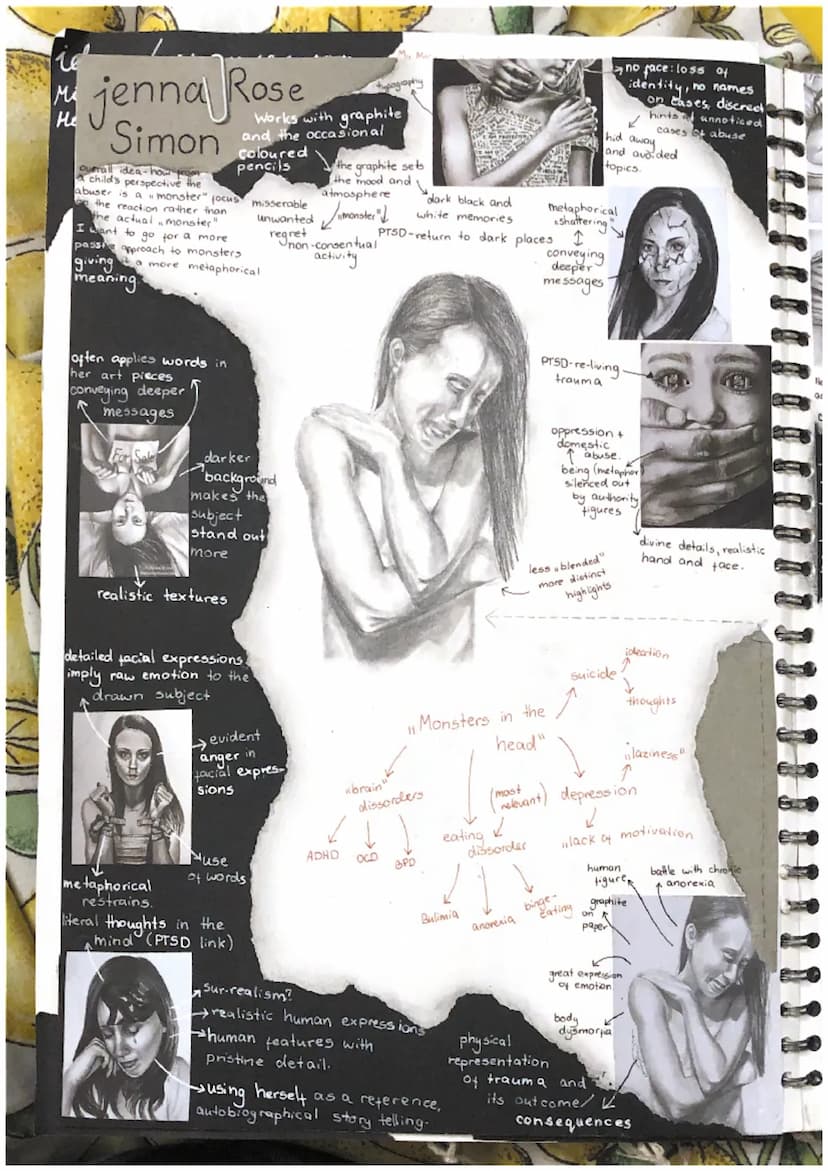 jenna Rose
Simon
Works with graphite
and the occasional
coloured
pencils
typography
no face: loss of
identity, no names
on cases, discreet
hints of unnoticed
cases of abuse
hid away
and avoided
topics.
overall idea-how from
a child's perspective the
abuser is a „monster" focus
on the reaction rather than
the actual „monster"
I want to go for a more
passive approach to monsters
giving it a more metaphorical
meaning.
the graphite sets
the mood and
atmosphere
misserable
unwanted
regret
„monster"
non-consentual
activity
dark black and
white memories
PTSD-return to dark places
metaphorical
„shattering"
conveying
deeper
messages
often applies words in
her art pieces
conveying deeper
messages
For Sale
darker
background
makes the
subject
stand out
more
realistic textures
PTSD-re-living
trauma
oppression +
domestic
abuse.
being (metaphor
silenced out
by authority
figures
divine details, realistic
hand and face.
less „blended"
more distinct
highlights
detailed facial expressions
imply raw emotion to the
drawn subject
evident
anger in
facial expres-
sions
use
of words
metaphorical
restrains.
„Monsters in the
head"
suicide
ideation
thoughts
„brain"
dissorders
ADHD
OCD
BPD
(most
relevant)
eating
dissorder
Bulimia
anorexia
binge-
eating
depression
„laziness"
„lack of motivation
literal thoughts in the
mind (PTSD link)
sur-realism?
realistic human expressions
human features with
pristine detail.
using herself as a reference,
autobiographical story telling.
human
figure
battle with chronic
anorexia
graphite
on
paper
great expression
of emotion
body
dysmorpia
physical
representation
of trauma and
its outcome/
consequences